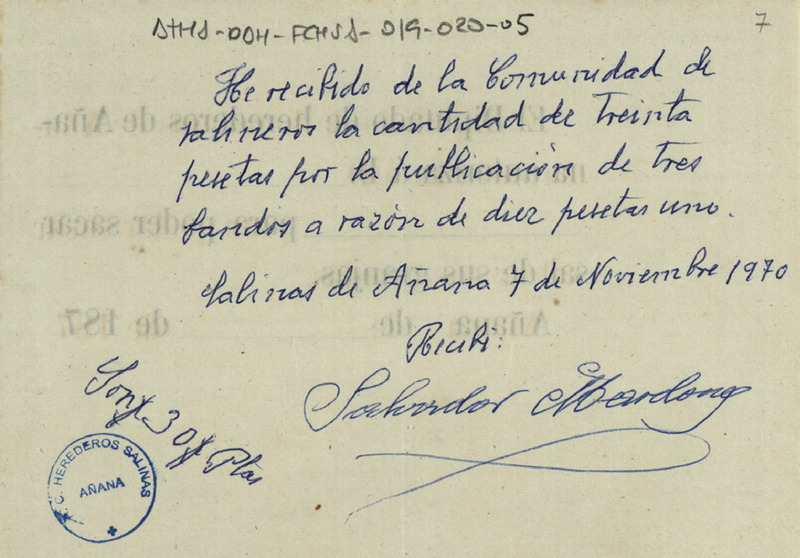 ATHA-DOH-FCHSA-019-020-05
7
He recibido de la Comunidad de
salineros la cantidad de treinta
pesetas por la publicación de tres
bandos a razón de diez pesetas uno.
Salinas de Añana 7 de Noviembre 1970
Recibí:
Salvador
Son 30 Ptas
C. HEREDEROS SALINAS
AÑANA
El Diputado de herederos de Aña-
na
para poder sacar
sal de sus granjas.
Añana de de 187